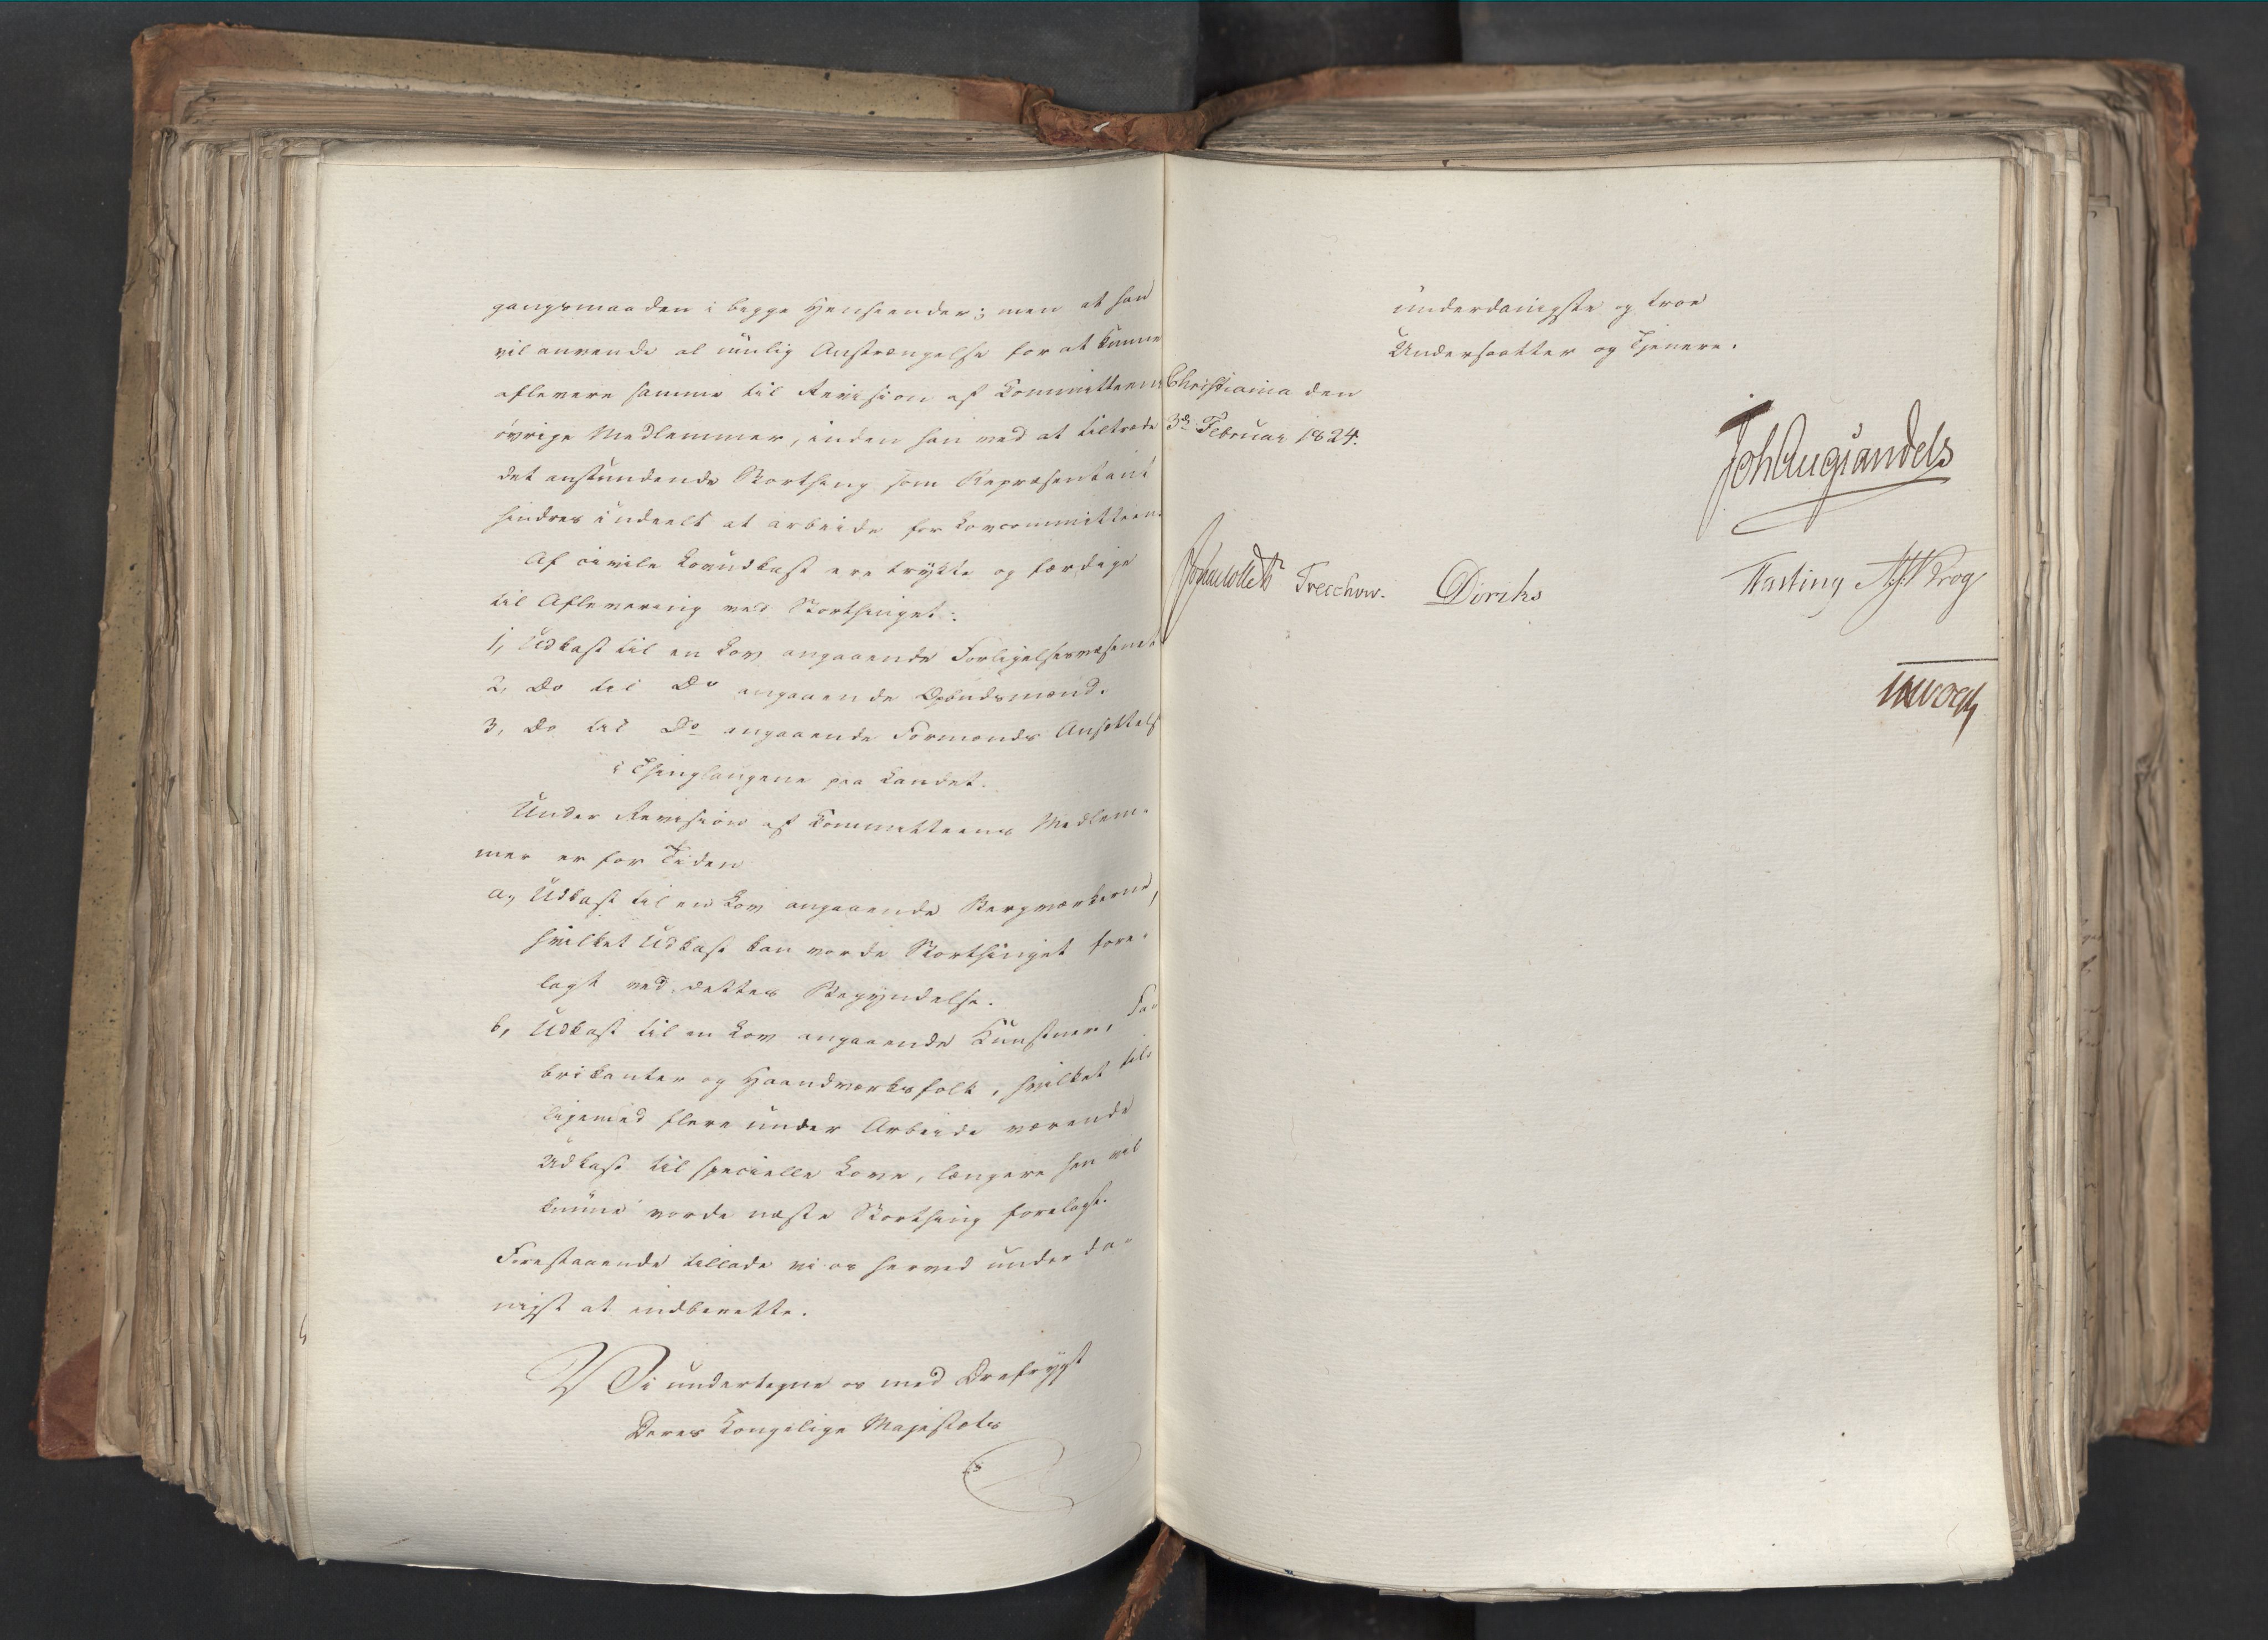 gangsmaaden i begge Henseender; men at han
vil anvende al mulig Anstrængelse for at kunne
aflevere samme til Revision af Committeens
øvrige Medlemmer, inden han ved at tiltræde
det anstundende Storthing som Repræsentant
hindres i udeelt at arbeide for Lovcommitteen.
Af civile Lovudkast ere trykte og færdige
til Aflevering ved Storthinget:
1, Udkast til en Lov angaaende Forligelsesvæsenet
2, Do til Do angaaende Opbudsmænd.
3, Do til Do angaaende Formænds Ansættelse
i Thinglaugene paa Landet.
Under Revision af Committeens Medlem-
mer er for Tiden
a, Udkast til en Lov angaaende Bergværkerne,
hvilket Udkast kan vorde Storthinget fore-
lagt ved dettes Begyndelse.
b, Udkast til en Lov angaaende Kunstnere, Fa-
brikanter og Haandværksfolk, hvilket til-
ligemed flere under Arbeide værende
Udkast til specielle Love, længere hen vil
kunne vorde næste Storthing forelagt.
Forestaaende tillade vi os herved underda-
nigst at indberette.
Vi undertegne os med Ærefrygt
Deres Kongelige Majestæts
underdanigste og troe
Undersaatter og Tjenere.
Christiania den
3de Februar 1824.
Joh Aug Sandels
Jonas Collett Treschow. Diriks Fasting Krog